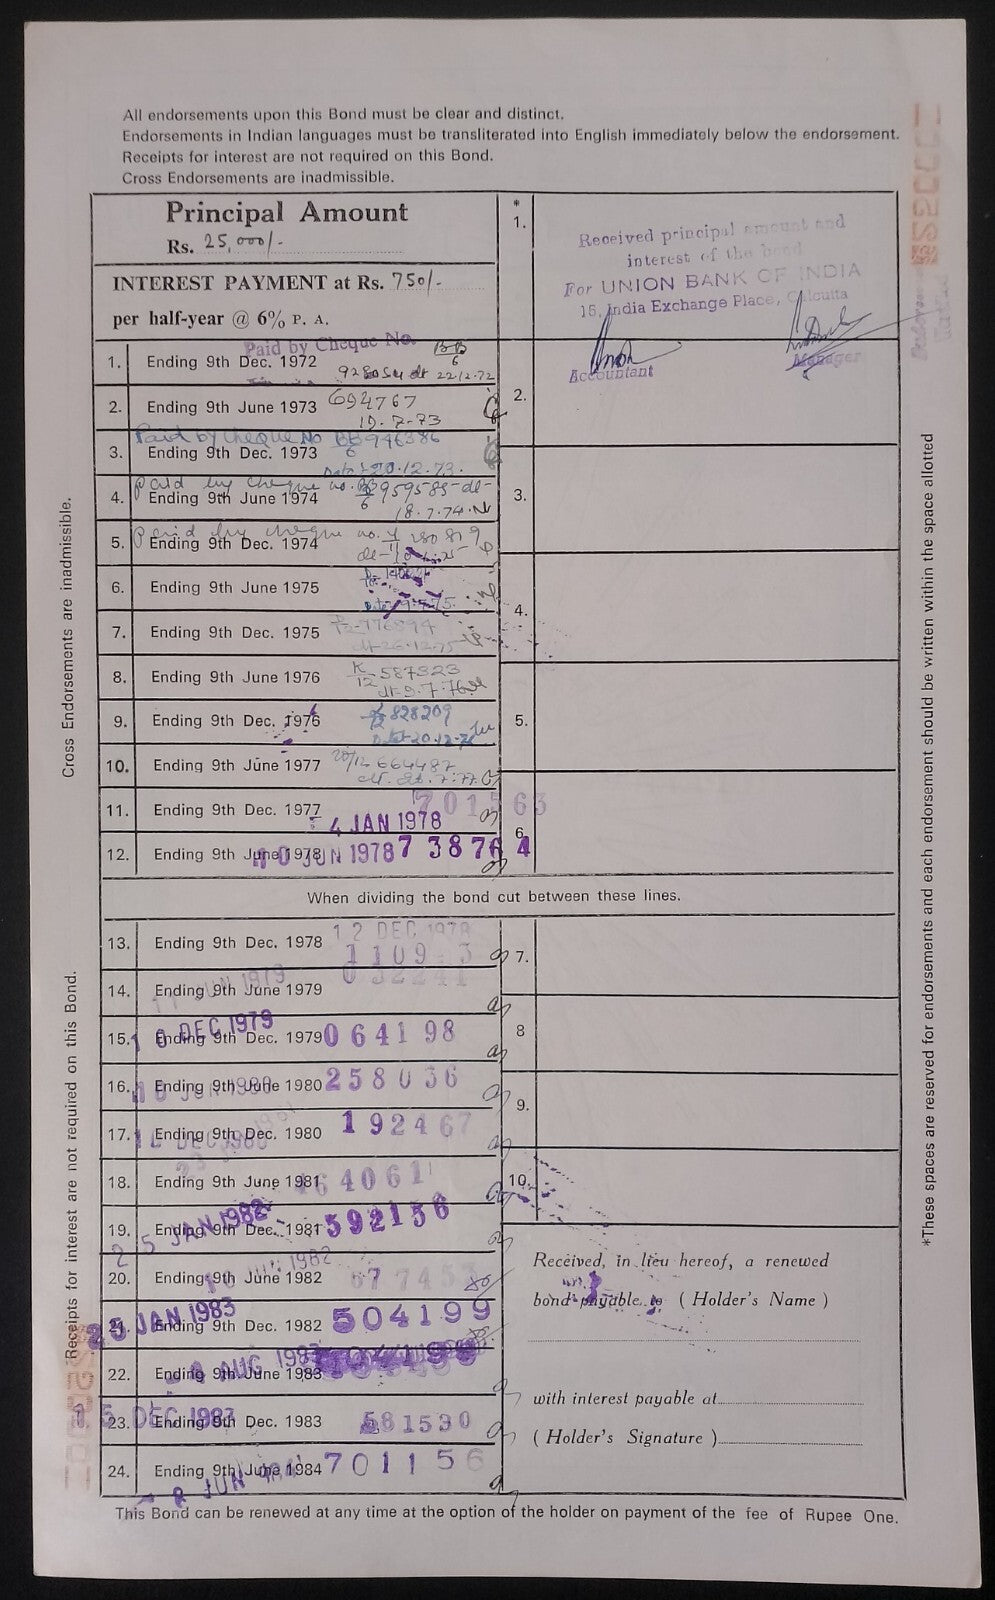 All endorsements upon this Bond must be clear and distinct.
Endorsements in Indian languages must be transliterated into English immediately below the endorsement.
Receipts for interest are not required on this Bond.
Cross Endorsements are inadmissible.
Principal Amount
Rs. 25,000/-
INTEREST PAYMENT at Rs. 750/-
per half-year @ 6% P. A.
Paid by Cheque No.
1. Ending 9th Dec. 1972
22.12.72
2. Ending 9th June 1973 694767
19.7.73
Paid by Cheque No BB 946386
6
3. Ending 9th Dec. 1973
20.12.73.
paid by cheque no. 959585
4. Ending 9th June 1974
18.7.74
paid by cheque no.
5. Ending 9th Dec. 1974
6. Ending 9th June 1975
7. Ending 9th Dec. 1975
8. Ending 9th June 1976 K 587323
12
9.7.76
9. Ending 9th Dec. 1976 828209
10. Ending 9th June 1977 664487
11. Ending 9th Dec. 1977
4 JAN 1978
12. Ending 9th June 1978 738764
JUN 1978
*
1.
Received principal amount and
interest of the bond
For UNION BANK OF INDIA
15, India Exchange Place, Calcutta
Accountant Manager
2.
3.
4.
5.
6.
When dividing the bond cut between these lines.
12 DEC 1978
13. Ending 9th Dec. 1978
14. Ending 9th June 1979
JUN 1979
15. Ending 9th Dec. 1979 064198
10 DEC 1979
16. Ending 9th June 1980 258036
JUN 1980
17. Ending 9th Dec. 1980 192467
DEC 1980
18. Ending 9th June 1981 464061
19. Ending 9th Dec. 1981 592156
25 JAN 1982
20. Ending 9th June 1982
1982
21. Ending 9th Dec. 1982 504199
25 JAN 1983
22. Ending 9th June 1983
AUG 1983
23. Ending 9th Dec. 1983 581530
15 DEC 1983
24. Ending 9th June 1984 701156
JUN
7.
8
9.
10.
Received, in lieu hereof, a renewed
bond payable to ( Holder's Name )
with interest payable at
( Holder's Signature )
This Bond can be renewed at any time at the option of the holder on payment of the fee of Rupee One.
Cross Endorsements are inadmissible.
Receipts for interest are not required on this Bond.
*These spaces are reserved for endorsements and each endorsement should be written within the space allotted